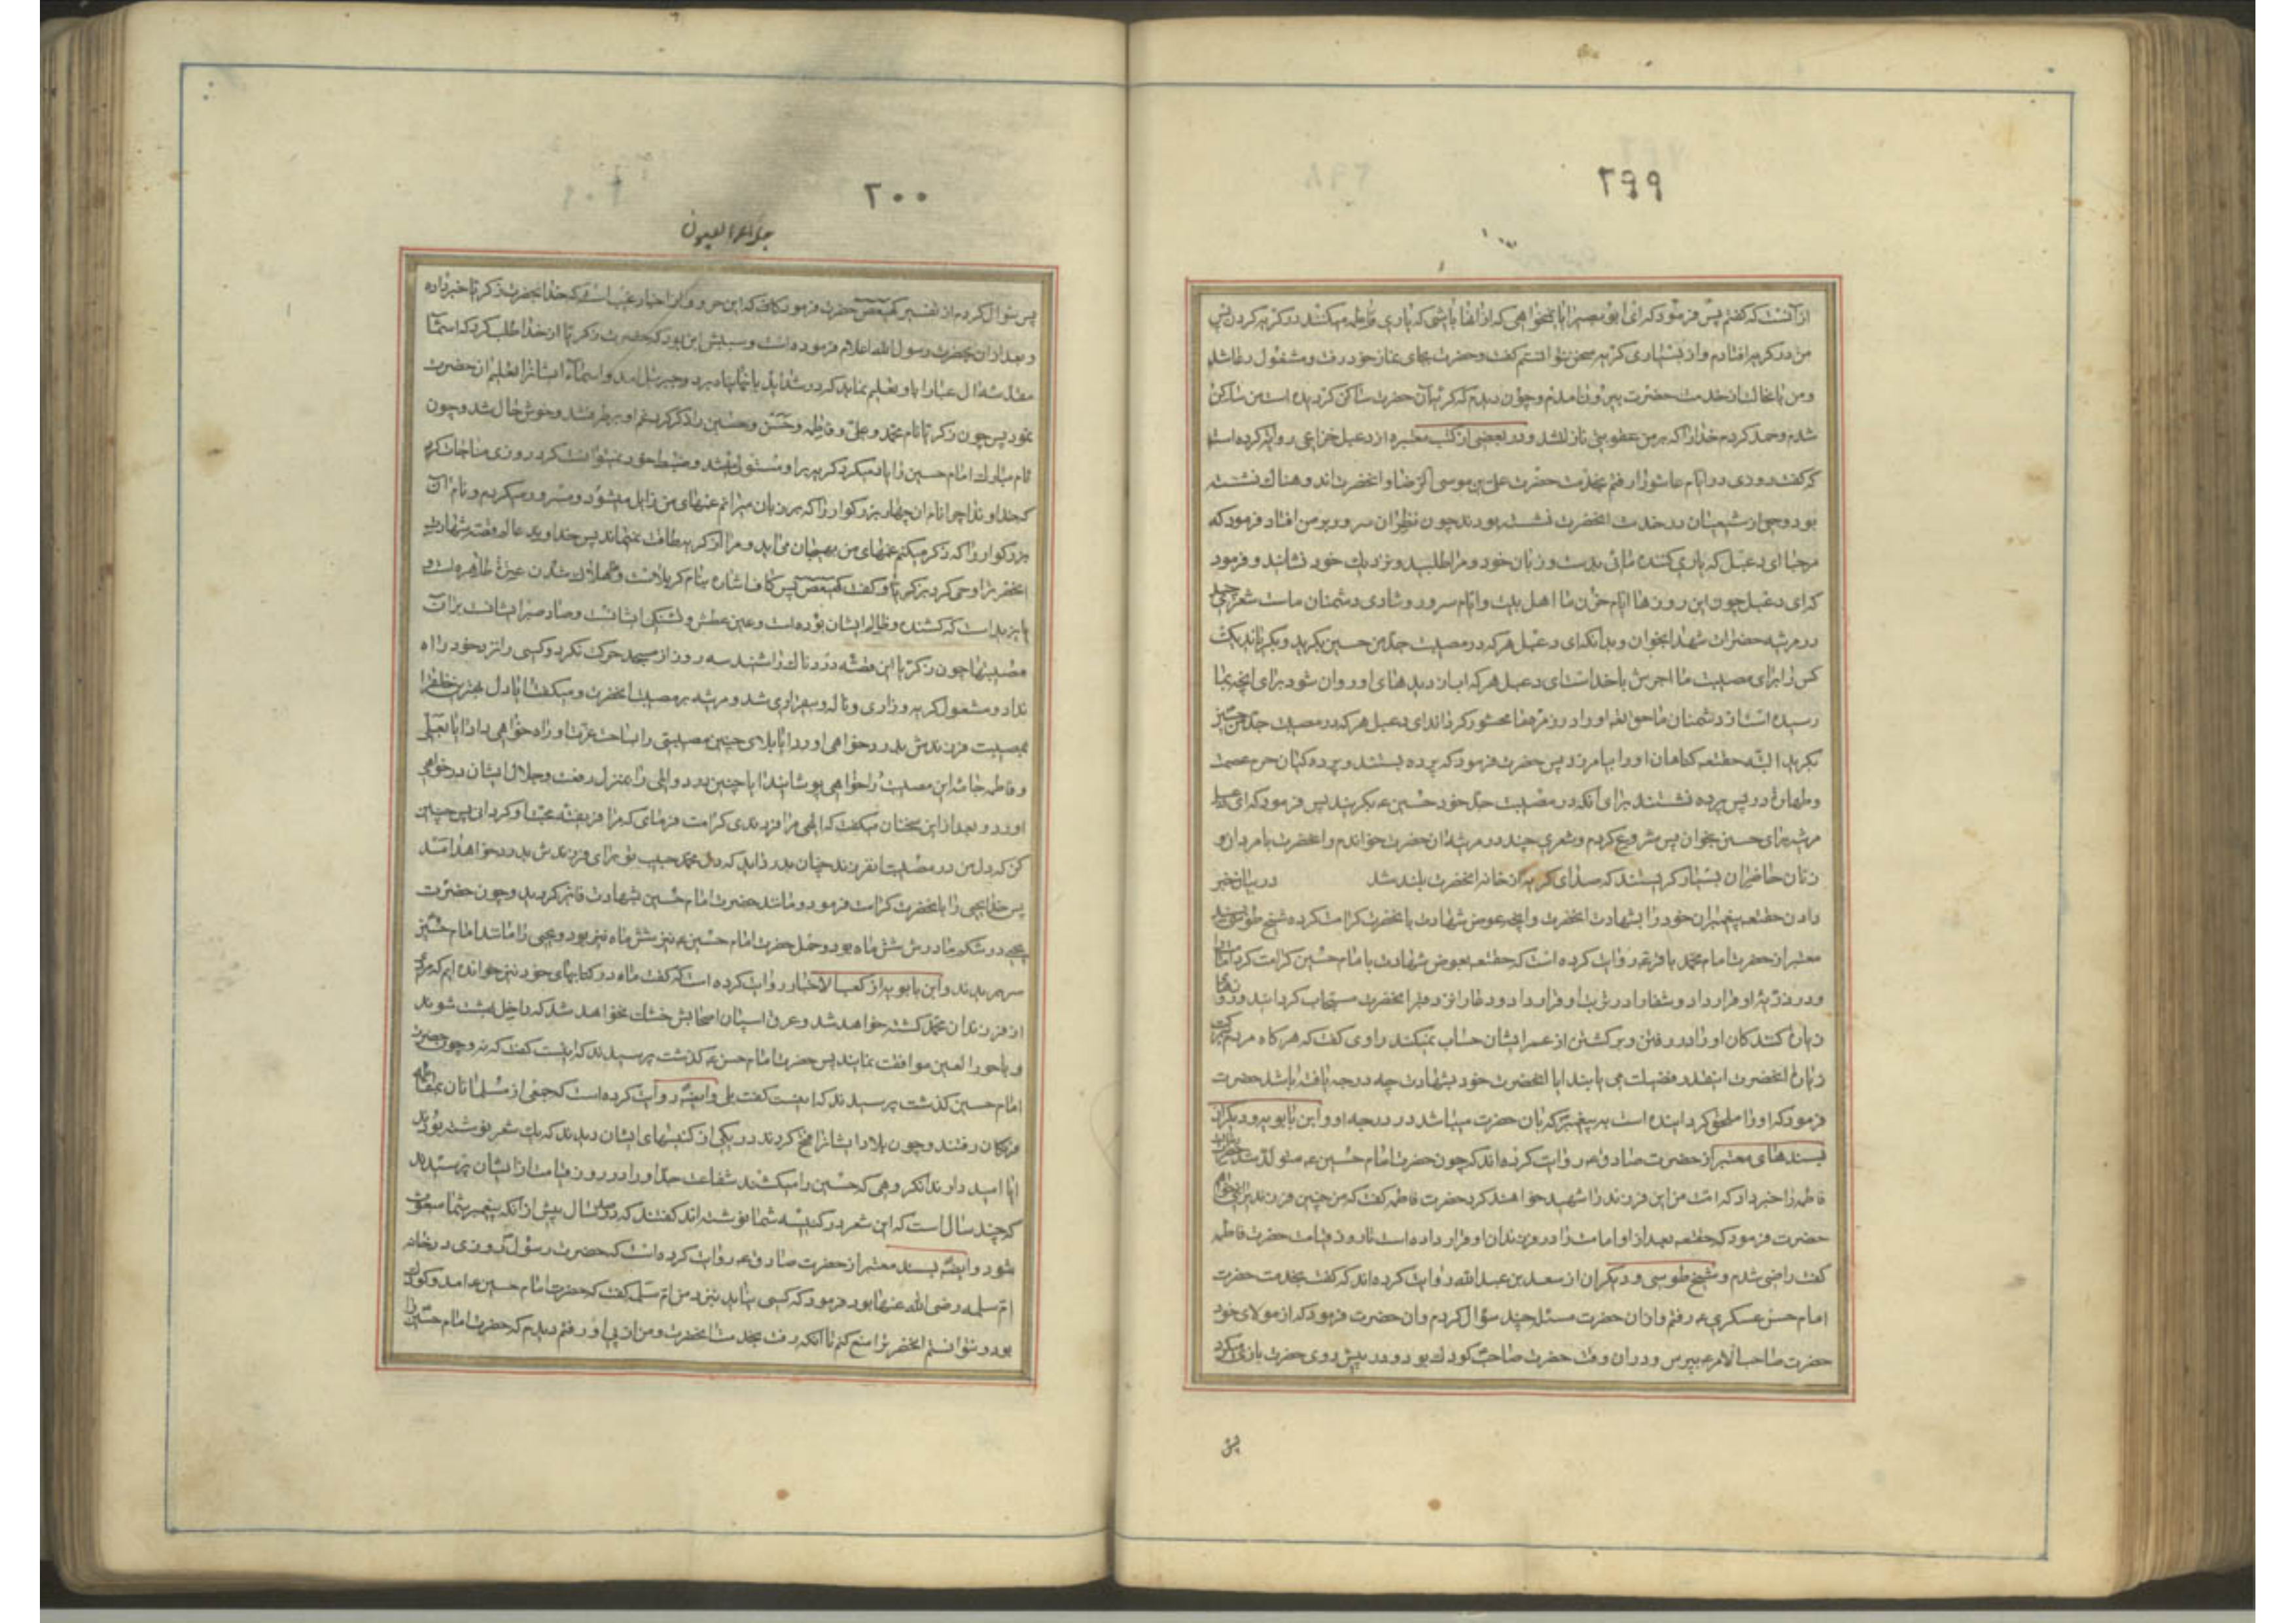 ۲۹۹
از آنست که گفتم پس فرمود که ای ابو بصیر ایا نمیخواهی که از انها باشی که یاری فاطمه میکنند در گریه کردن پس
من در گریه افتادم و از بسیاری گریه سخن نتوانستم گفت و حضرت بجای نماز خود رفت و مشغول دعا شد
و من با نحال از خدمت حضرت بیرون امدم و چون دیدم که گریه آن حضرت ساکن گردیده است من ساکن
شدم و حمد کردم خدا را که بر من عقوبتی نازل نشد و در بعضی از کتب معتبره از دعبل خزاعی روایت کرده است
که گفت روزی در ایام عاشورا رفتم بخدمت حضرت علی بن موسی الرضا و انحضرت اندوهناک نشسته
بود و جمعی از شیعیان در خدمت انحضرت نشسته بودند چون نظر ان سرور بر من افتاد فرمود که
مرحبا ای دعبل که یاری کننده مائی بدست و زبان خود و مرا طلبید و نزدیک خود نشانید و فرمود
که ای دعبل چون این روزها ایام حزن ما اهل بیت و ایام سرور و شادی دشمنان ماست شعری چند
در مرثیه حضرات شهدا بخوان و بدانکه ای دعبل هر که در مصیبت جد من حسین بگرید و بگریاند یک
کس را برای مصیبت ما اجرش با خداست ای دعبل هر که اب از دیدهای او روان شود برای انچه بما
رسیده است از دشمنان ما حق تعالی او را در زمره ما محشور گرداند ای دعبل هر که در مصیبت جد من حسین
بگرید البته حقتعالی گناهان او را بیامرزد پس حضرت فرمود که پرده بستند و پرده کیان حرم عصمت
و طهارت در پس پرده نشستند برای آنکه در مصیبت جد خود حسین ع بگریند پس فرمود که ای دعبل
مرثیه برای حسین بخوان پس شروع کردم و شعری چند در مرثیه ان حضرت خواندم و انحضرت با مردان و
زنان حاضران بسیار گریستند که صدای گریه از خانه انحضرت بلند شد در بیان خبر
دادن حقتعالی پیغمبران خود را بشهادت انحضرت و انچه عوض شهادت بانحضرت کرامت کرده شیخ طوسی بسند
معتبر از حضرت امام محمد باقر ع روایت کرده است که حقتعالی بعوض شهادت با امام حسین کرامت کرد امامت را
در ذریه او قرار داد و شفا را در تربت او قرار داد و دعا را نزد قبر انحضرت مستجاب گردانید و روزهای
زیارت کنندگان او را در رفتن و برگشتن از عمر ایشان حساب نمیکند راوی گفت که هر گاه مردم ببرکت
زیارت انحضرت اینقدر فضیلت می یابند ایا انحضرت خود بشهادت چه درجه یافته باشد حضرت
فرمود که او را ملحق گردانیده است به پیغمبر که بان حضرت میباشد در درجه او و ابن بابویه و دیگران
بسندهای معتبر از حضرت صادق ع روایت کرده اند که چون حضرت امام حسین ع متولد شد حضرت رسول
فاطمه را خبر داد که امت من این فرزند را شهید خواهند کرد حضرت فاطمه گفت که من چنین فرزندیرا نمیخواهم
حضرت فرمود که حقتعالی بعد از او امامت را در فرزندان او قرار داده است تا روز قیامت حضرت فاطمه
گفت راضی شدم و شیخ طوسی و دیگران از سعد بن عبد الله روایت کرده اند که گفت بخدمت حضرت
امام حسن عسکری ع رفتم و از ان حضرت مسئله چند سؤال کردم و ان حضرت فرمود که از مولای خود
حضرت صاحب الامر ع بپرس و در ان وقت حضرت صاحب کودک بود و در پیش روی حضرت بازی میکرد
پس
۲۰۰
جلاء العیون
پس سؤال کردم از تفسیر کهیعص حضرت فرمود که این حروف از اخبار غیب است که خدا بحضرت زکریا خبر داده
و بعد از ان بحضرت رسول الله اعلام فرموده است و سببش این بود که حضرت زکریا از خدا طلب کرد که اسماء
مقدسه ال عبا را باو تعلیم نماید که در شداید بانها پناه برد و جبرئیل امد و اسماء ایشانرا تعلیم ان حضرت
نمود پس چون زکریا نام محمد و علی و فاطمه و حسن و حسین را ذکر کرد غم او بر طرف شد و خوش حال شد و چون
نام مبارک امام حسین را یاد میکرد گریه بر او مستولی میشد و ضبط خود نمیتوانست کرد روزی مناجات کرد
که خداوندا چرا نام ان چهار بزرگوار را که بر زبان میرانم غمهای من زایل میشود و مسرور میگردم و نام آن
بزرگوار را که ذکر میکنم غمهای من بهیجان می اید و مرا از گریه طاقت نمیماند پس خداوند عالم قصه شهادت
انحضرترا وحی کرد بزکریا و گفت کهیعص پس کاف اشاره بنام کربلاست و ها هلاک شدن عترت طاهره است و
یا یزید است که کشنده و ظالم ایشان بوده است و عین عطش و تشنگی ایشانست و صاد صبر ایشانست بر آن
مصیبتها چون زکریا این قصه دردناک را شنید سه روز از مسجد حرکت نکرد و کسی را نزد خود راه
نداد و مشغول گریه و زاری و ناله و بیقراری شد و مرثیه بر مصیبت انحضرت و میگفت ایا دل بهترین خلق را
بمصیبت فرزندش بدرد خواهی اورد ایا بلای چنین مصیبتی را بساحت عزت او راه خواهی داد ایا بعلی
و فاطمه جامه این مصیبت را خواهی پوشانید ایا چنین درد و المی را بمنزل رفعت و جلال ایشان در خواهی
اورد و بعد از این سخنان میگفت که الهی مرا فرزندی کرامت فرمای که مرا فریفته محبت او گردانی پس چنین
کن که دل من در مصیبت انفرزند چنان بدرد اید که دل محمد حبیب تو برای فرزندش بدرد خواهد امد
پس خدا یحیی را بانحضرت کرامت فرمود و مانند حضرت امام حسین بشهادت فایز گردید و چون حضرت
یحیی در شکم مادرش شش ماه بود و حمل حضرت امام حسین ع نیز شش ماه نیز بود و یحیی را مانند امام حسین
سر بریدند و ابن بابویه از کعب الاحبار روایت کرده است که گفت ما در کتابهای خود نیز خوانده ایم که مردی
از فرزندان محمد کشته خواهد شد و عرق اسبان اصحابش خشک نخواهد شد که داخل بهشت شوند
و با حور العین موافقت نمایند پس حضرت امام حسن ع گذشت پرسیدند که اینست گفت که نه و چون حضرت
امام حسین گذشت پرسیدند که اینست گفت بلی و ایضا روایت کرده است که جمعی از مسلمانان بمقاتله
فرنگان رفتند و چون بلاد ایشانرا فتح کردند در یکی از کنیسهای ایشان دیدند که یک شعر نوشته بودند
ایا امید دارند انگروهی که حسین را میکشند شفاعت جد او را در روز قیامت از ایشان پرسیدند
که چند سال است که این شعر در کنیسه شما نوشته اند گفتند که سال پیش از انکه پیغمبر شما مبعوث
شود و ایضا بسند معتبر از حضرت صادق ع روایت کرده است که حضرت رسول روزی در خانه
ام سلمه رضی الله عنها بود فرمود که کسی نیاید نزد من ام سلمه گفت که حضرت امام حسین ع امد و کودک
بود و نتوانستم انحضرترا منع کنم تا آنکه رفت بخدمت انحضرت و من از پی او رفتم دیدم که حضرت امام حسین را